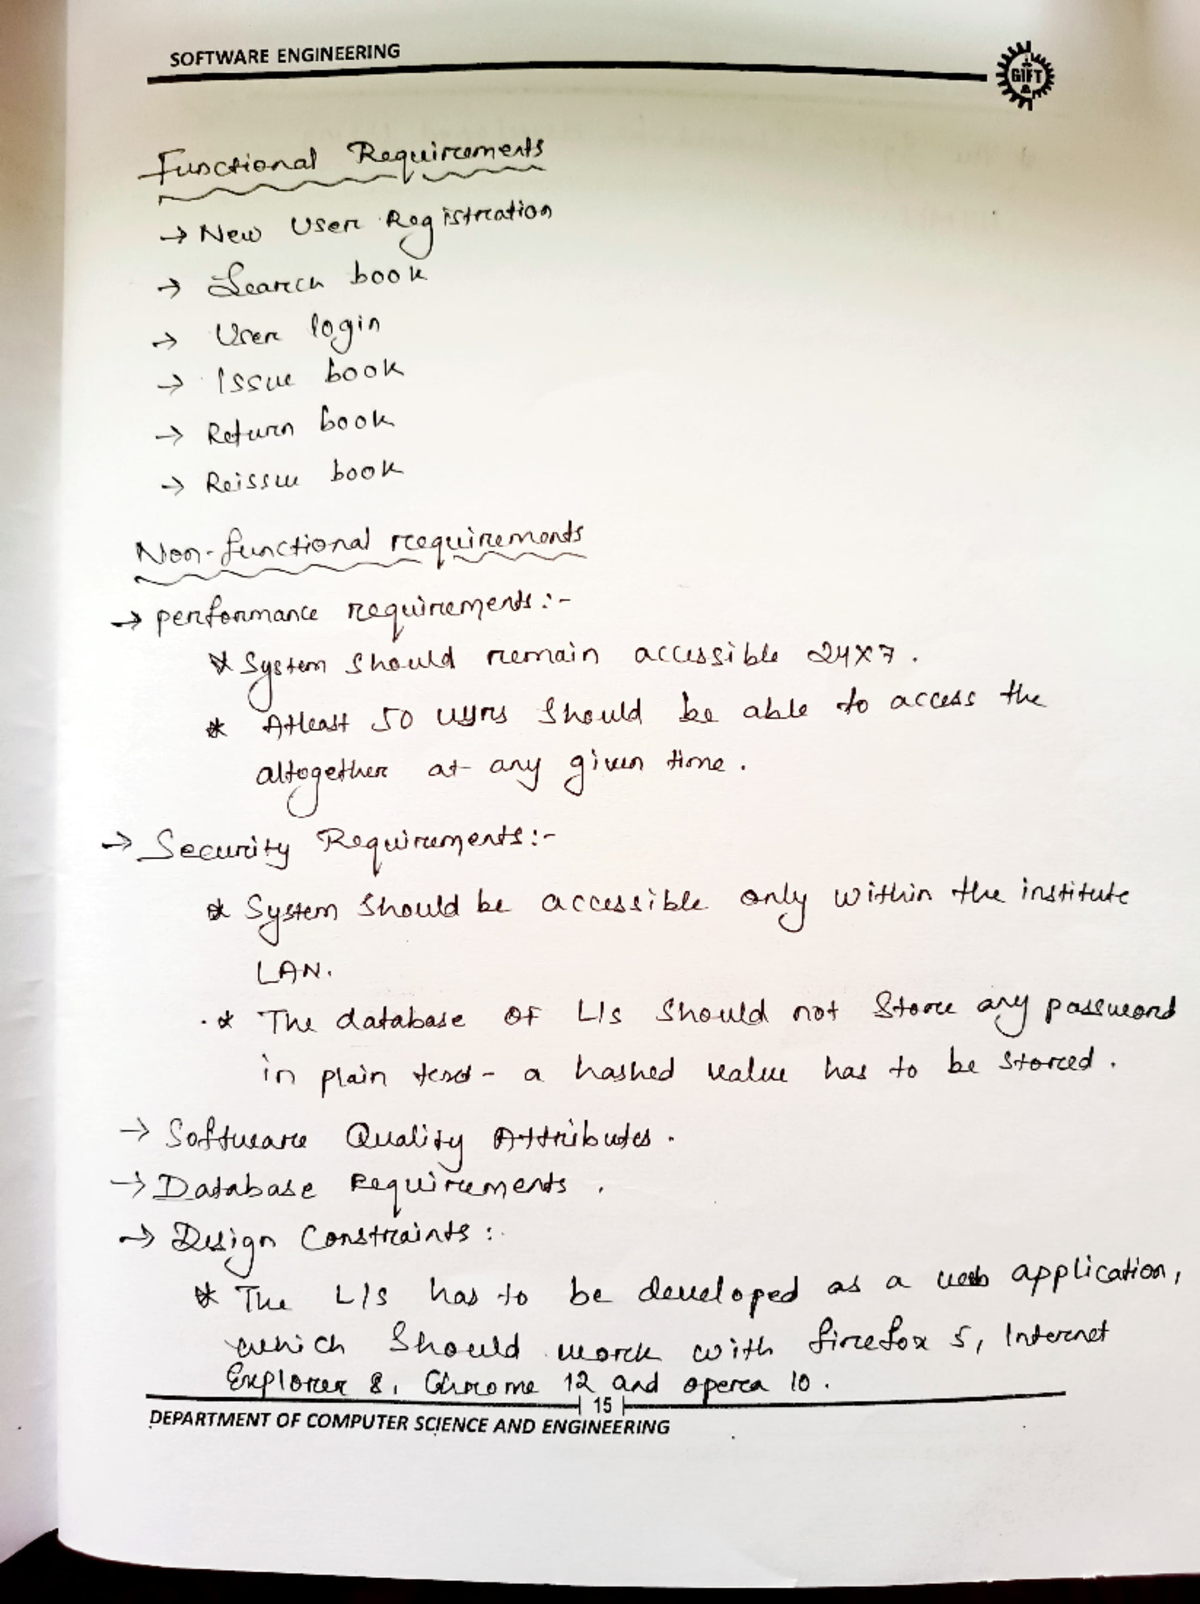 SOFTWARE ENGINEERING
GIFT
Functional Requirements
→ New User Registration
→ Search book
→ User login
→ Issue book
→ Return book
→ Reissue book
Non-functional requirements
→ performance requirements:-
* System should remain accessible 24x7.
* Atleast 50 users should be able to access the
altogether at any given time.
→ Security Requirements:-
* System should be accessible only within the institute
LAN.
* The database of LIs should not store any password
in plain text - a hashed value has to be stored.
→ Software Quality Attributes.
→ Database Requirements.
→ Design Constraints:
* The LIs has to be developed as a web application,
which should work with firefox 5, Internet
Explorer 8, Chrome 12 and opera 10.
15
DEPARTMENT OF COMPUTER SCIENCE AND ENGINEERING